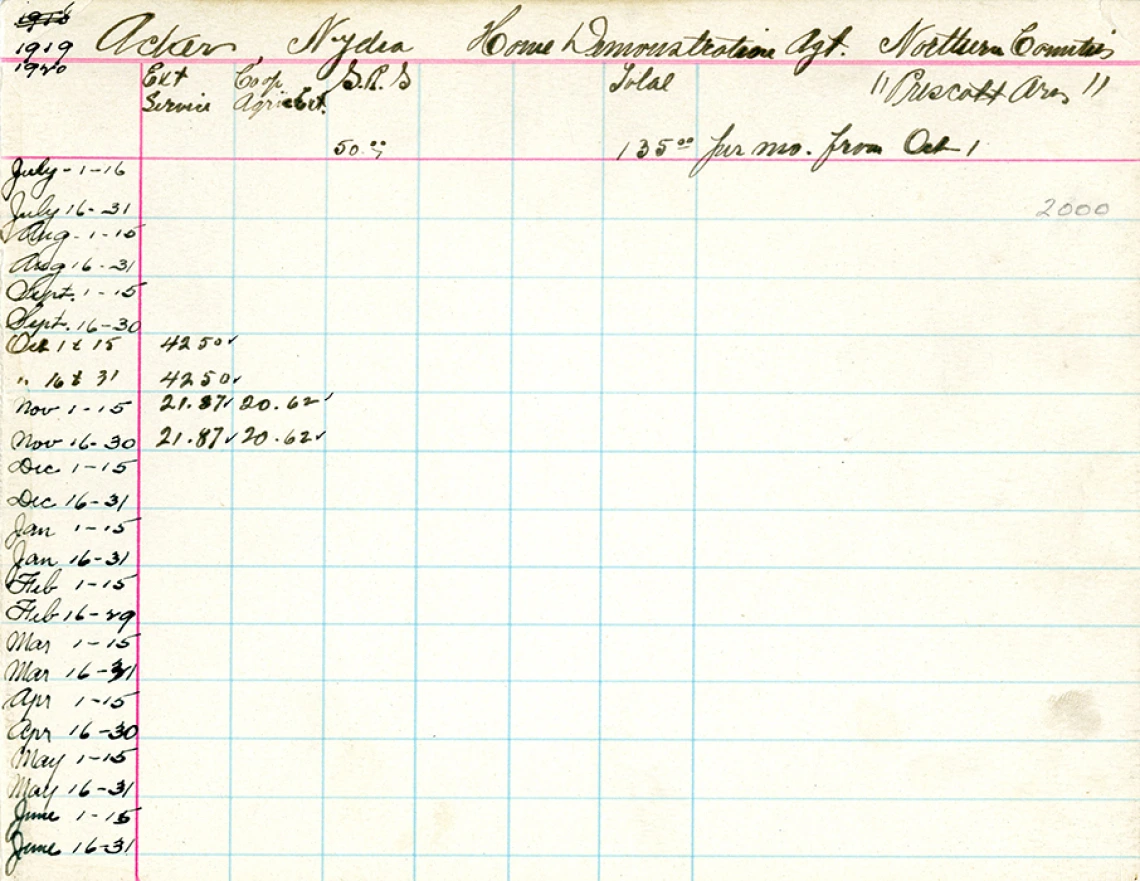 1918
1919 Acker, Nydia Home Demonstration Agt. Northern Counties
1920
Ext Coop S.R.S Total "Prescott Ares"
Service Agric Ext.
50.00 135 00 per mo. from Oct 1
July - 1-16
July 16-31 2000
Aug - 1-15
Aug 16-31
Sept. 1-15
Sept. 16-30
Oct 1 t 15 42 50✓
" 16 t 31 42 50✓
Nov 1-15 21.87✓ 20.62✓
Nov 16-30 21.87✓ 20.62✓
Dec 1-15
Dec 16-31
Jan 1-15
Jan 16-31
Feb 1-15
Feb 16-29
Mar 1-15
Mar 16-31
Apr 1-15
Apr 16-30
May 1-15
May 16-31
June 1-15
June 16-31